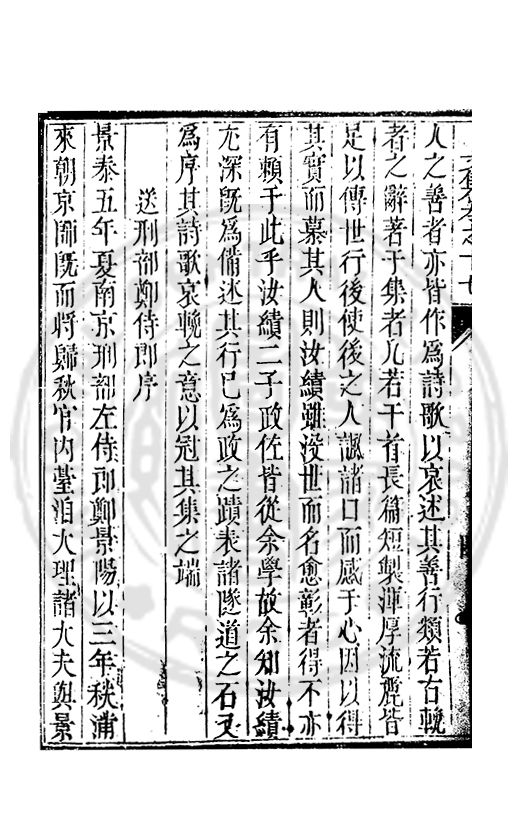 人之善者亦皆作爲詩歌以哀述其善行類若右輓
者之辭著于集者凡若干首長篇短製渾厚流麗皆
足以傳世行後使後之人誦諸口而感于心因以得
其實而慕其人則汝績雖没世而名愈彰者得不亦
有賴于此乎汝績二子政佐皆從余學故余知汝績
尤深旣爲備述其行已爲政之蹟表諸隧道之石又
爲序其詩歌哀輓之意以冠其集之端
送刑部鄭侍郎序
景泰五年夏南京刑部左侍郎鄭景陽以三年秋滿
來朝京師旣而將歸秋官内臺洎大理諸大夫與景